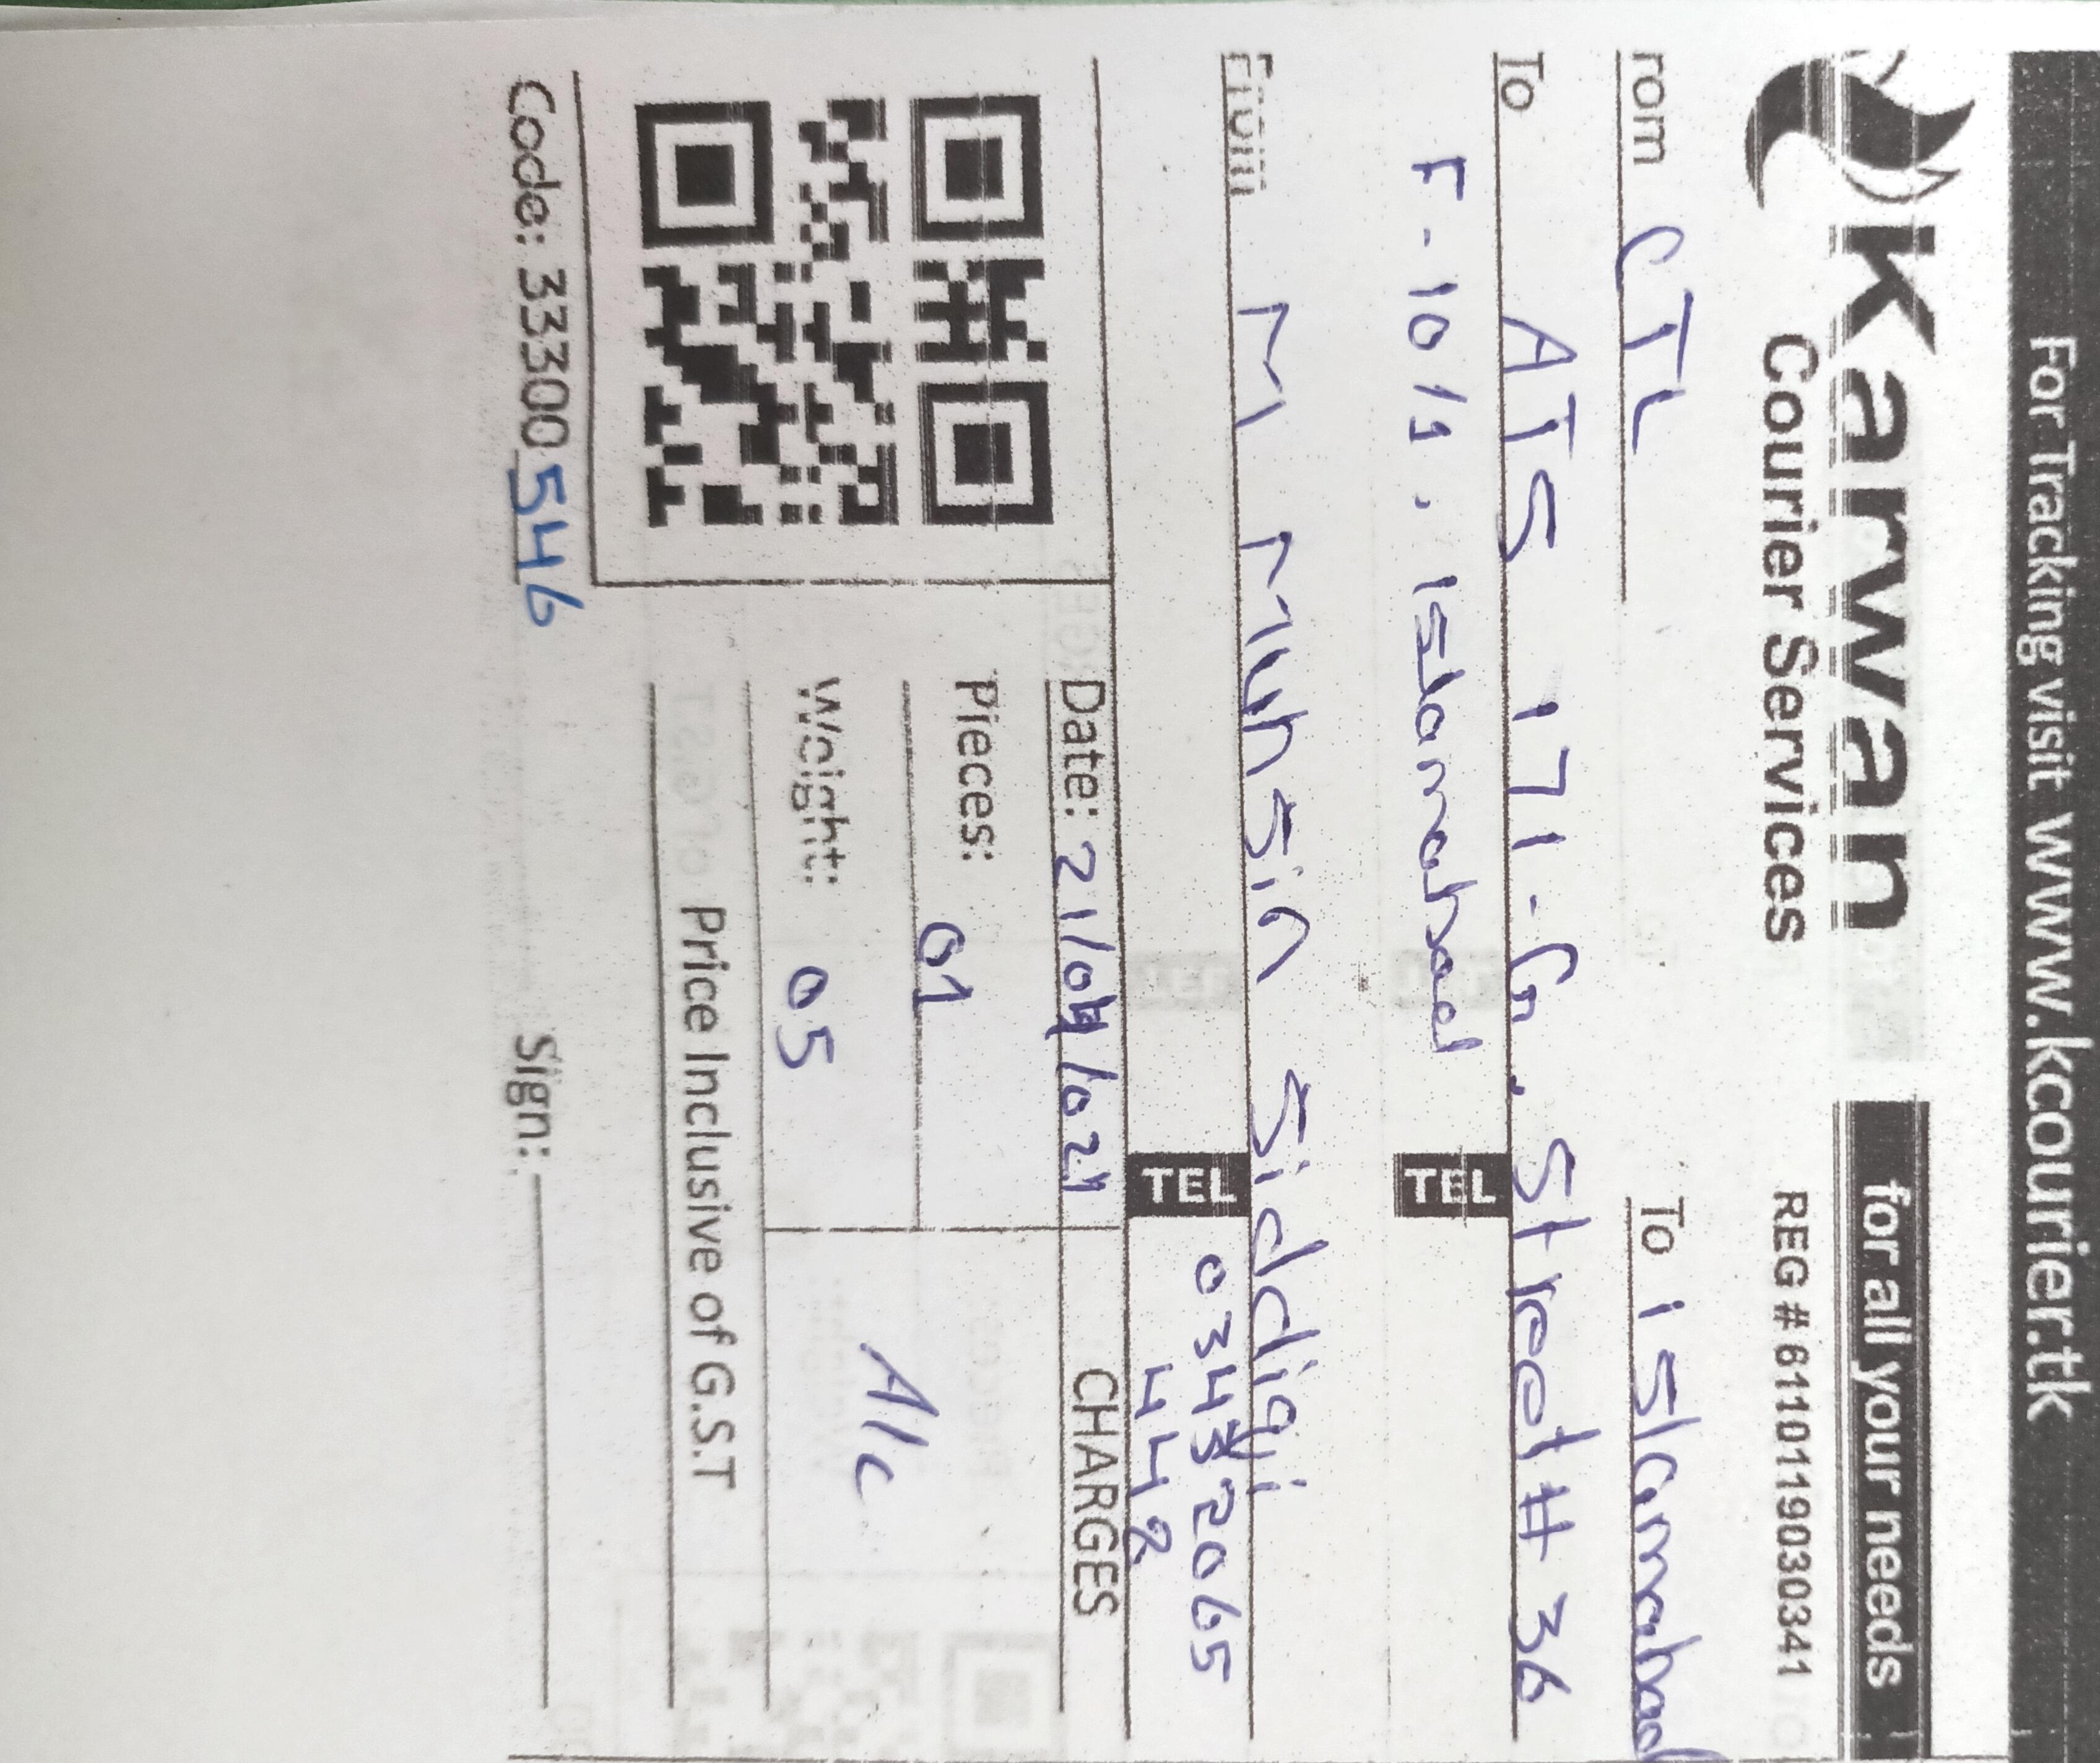 For Tracking visit www.kcourier.tk
Karwan
Courier Services
for all your needs
REG # 6110119030341
rom CTL
To islamabad
To ATS 171-G. Street # 36
F-10/1. Islamabad
TEL
From M Muhsin Siddiqi
TEL 03432065
442
Date: 21/04/021
CHARGES
Pieces: 01
A/c
Weight: 05
Price Inclusive of G.S.T
Code: 33300 546
Sign: